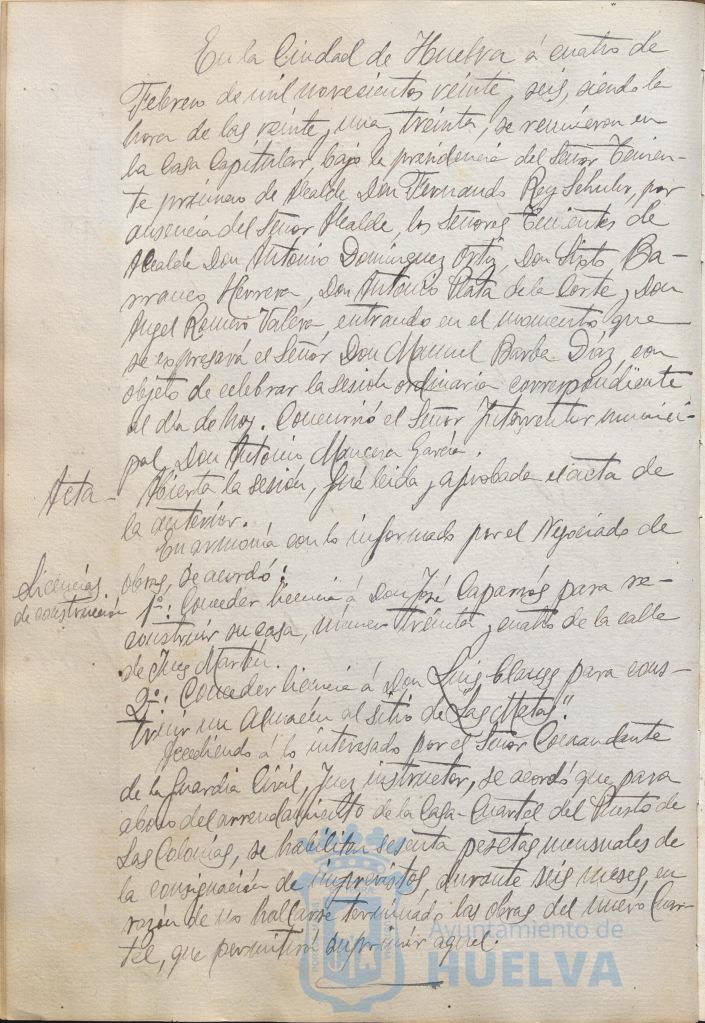 En la Ciudad de Huelva á cuatro de
Febrero de mil novecientos veinte y seis, siendo la
hora de las veinte y una y treinta, se reunieron en
la Casa Capitular, bajo la presidencia del Señor Tenien-
te primero de Alcalde Don Fernando Rey Schuler, por
ausencia del Señor Alcalde, los Señores Tenientes de
Alcalde Don Antonio Domínguez Ortiz, Don Sixto Ba-
rranco Herrera, Don Antonio Plata de la Corte y Don
Angel Romero Valera, entrando en el momento que
se expresará el Señor Don Manuel Barba Díaz, con
objeto de celebrar la sesión ordinaria correspondiente
al día de hoy. Concurrió el Señor Interventor munici-
pal, Don Antonio Mancera García.
Acta- Abierta la sesión, fué leida y aprobada el acta de
la anterior.
En armonía con lo informado por el Negociado de
Licencias obras, se acordó:
de construccion 1º: Conceder licencia á Don José Caparrós para re-
construir su casa, número treinta y cuatro de la calle
de Juez Martín.
2º: Conceder licencia á Don Luis Clauss para cons-
truir un almacén al sitio de "Las Metas".
Accediendo á lo interesado por el Señor Comandante
de la Guardia Civil, Juez instructor, se acordó que para
abono del arrendamiento de la Casa-Cuartel del Puesto de
Las Colonias, se habiliten sesenta pesetas mensuales de
la consignación de imprevistos, durante seis meses, en
razón de no hallarse terminado las obras del nuevo Cuar-
tel, que permitirá suprimir aquel.
Ayuntamiento de
HUELVA